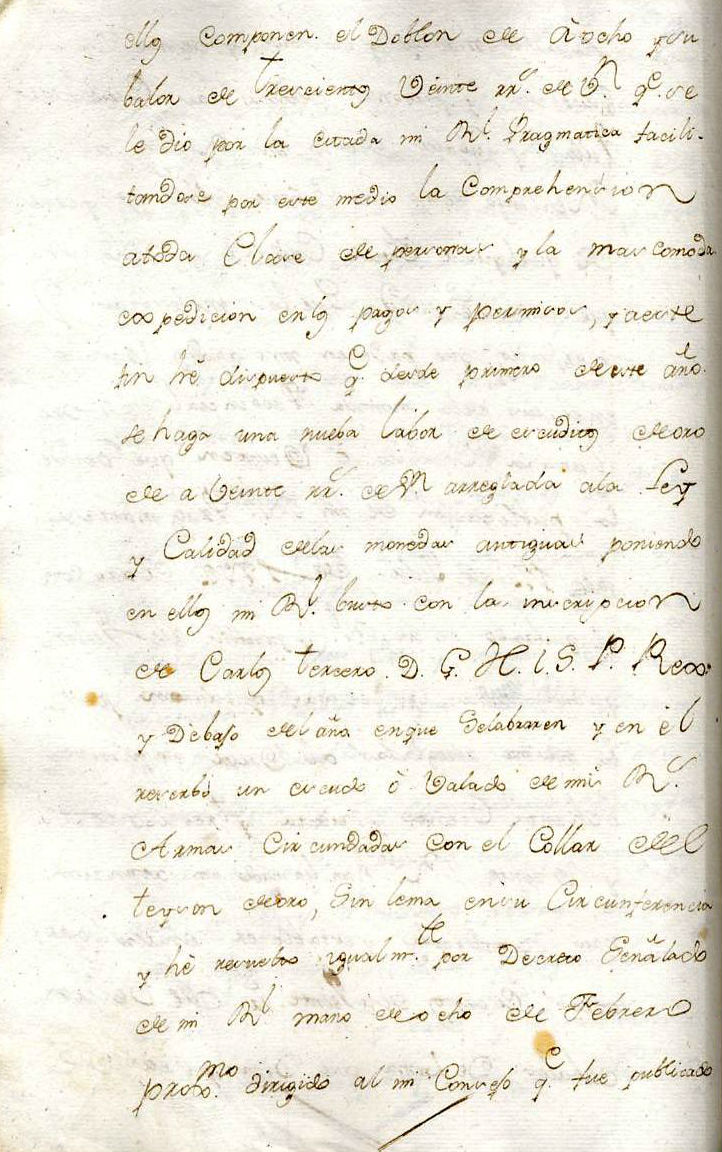 ellos componen. el Doblon de à ocho y su
balor de trescientos Veinte rrs. de Vn qe. se
le dio por la citada mi Rl. Pragmatica facili-
tandose por este medio la Comprehension
atoda Clase de personas y la mas comoda
expedicion enlos pagos y permisos, y aeste
fin hè dispuesto qe. desde primero de este año.
se haga una nueba labor de escuditos de oro
de a Veinte rrs. de Vn arreglada ala Ley
y Calidad delas monedas antiguas poniendo
en ellos mi Rl. busto con la inscripcion
de Carlos tercero. D. G. H. i. S. P. Rex.
y Debajo del año enque Selabraren y en èl
reverbo un escudo ò Valado de mis Rs.
Armas Circundadas con el Collar del
teyson de oro, Sin lema ensu Circunferencia
y hè resuelto igualmte. por Decreto Señalado
de mi Rl mano de ocho de Febrero
proxomo. dirigido al mi Consejo qe. fue publicado